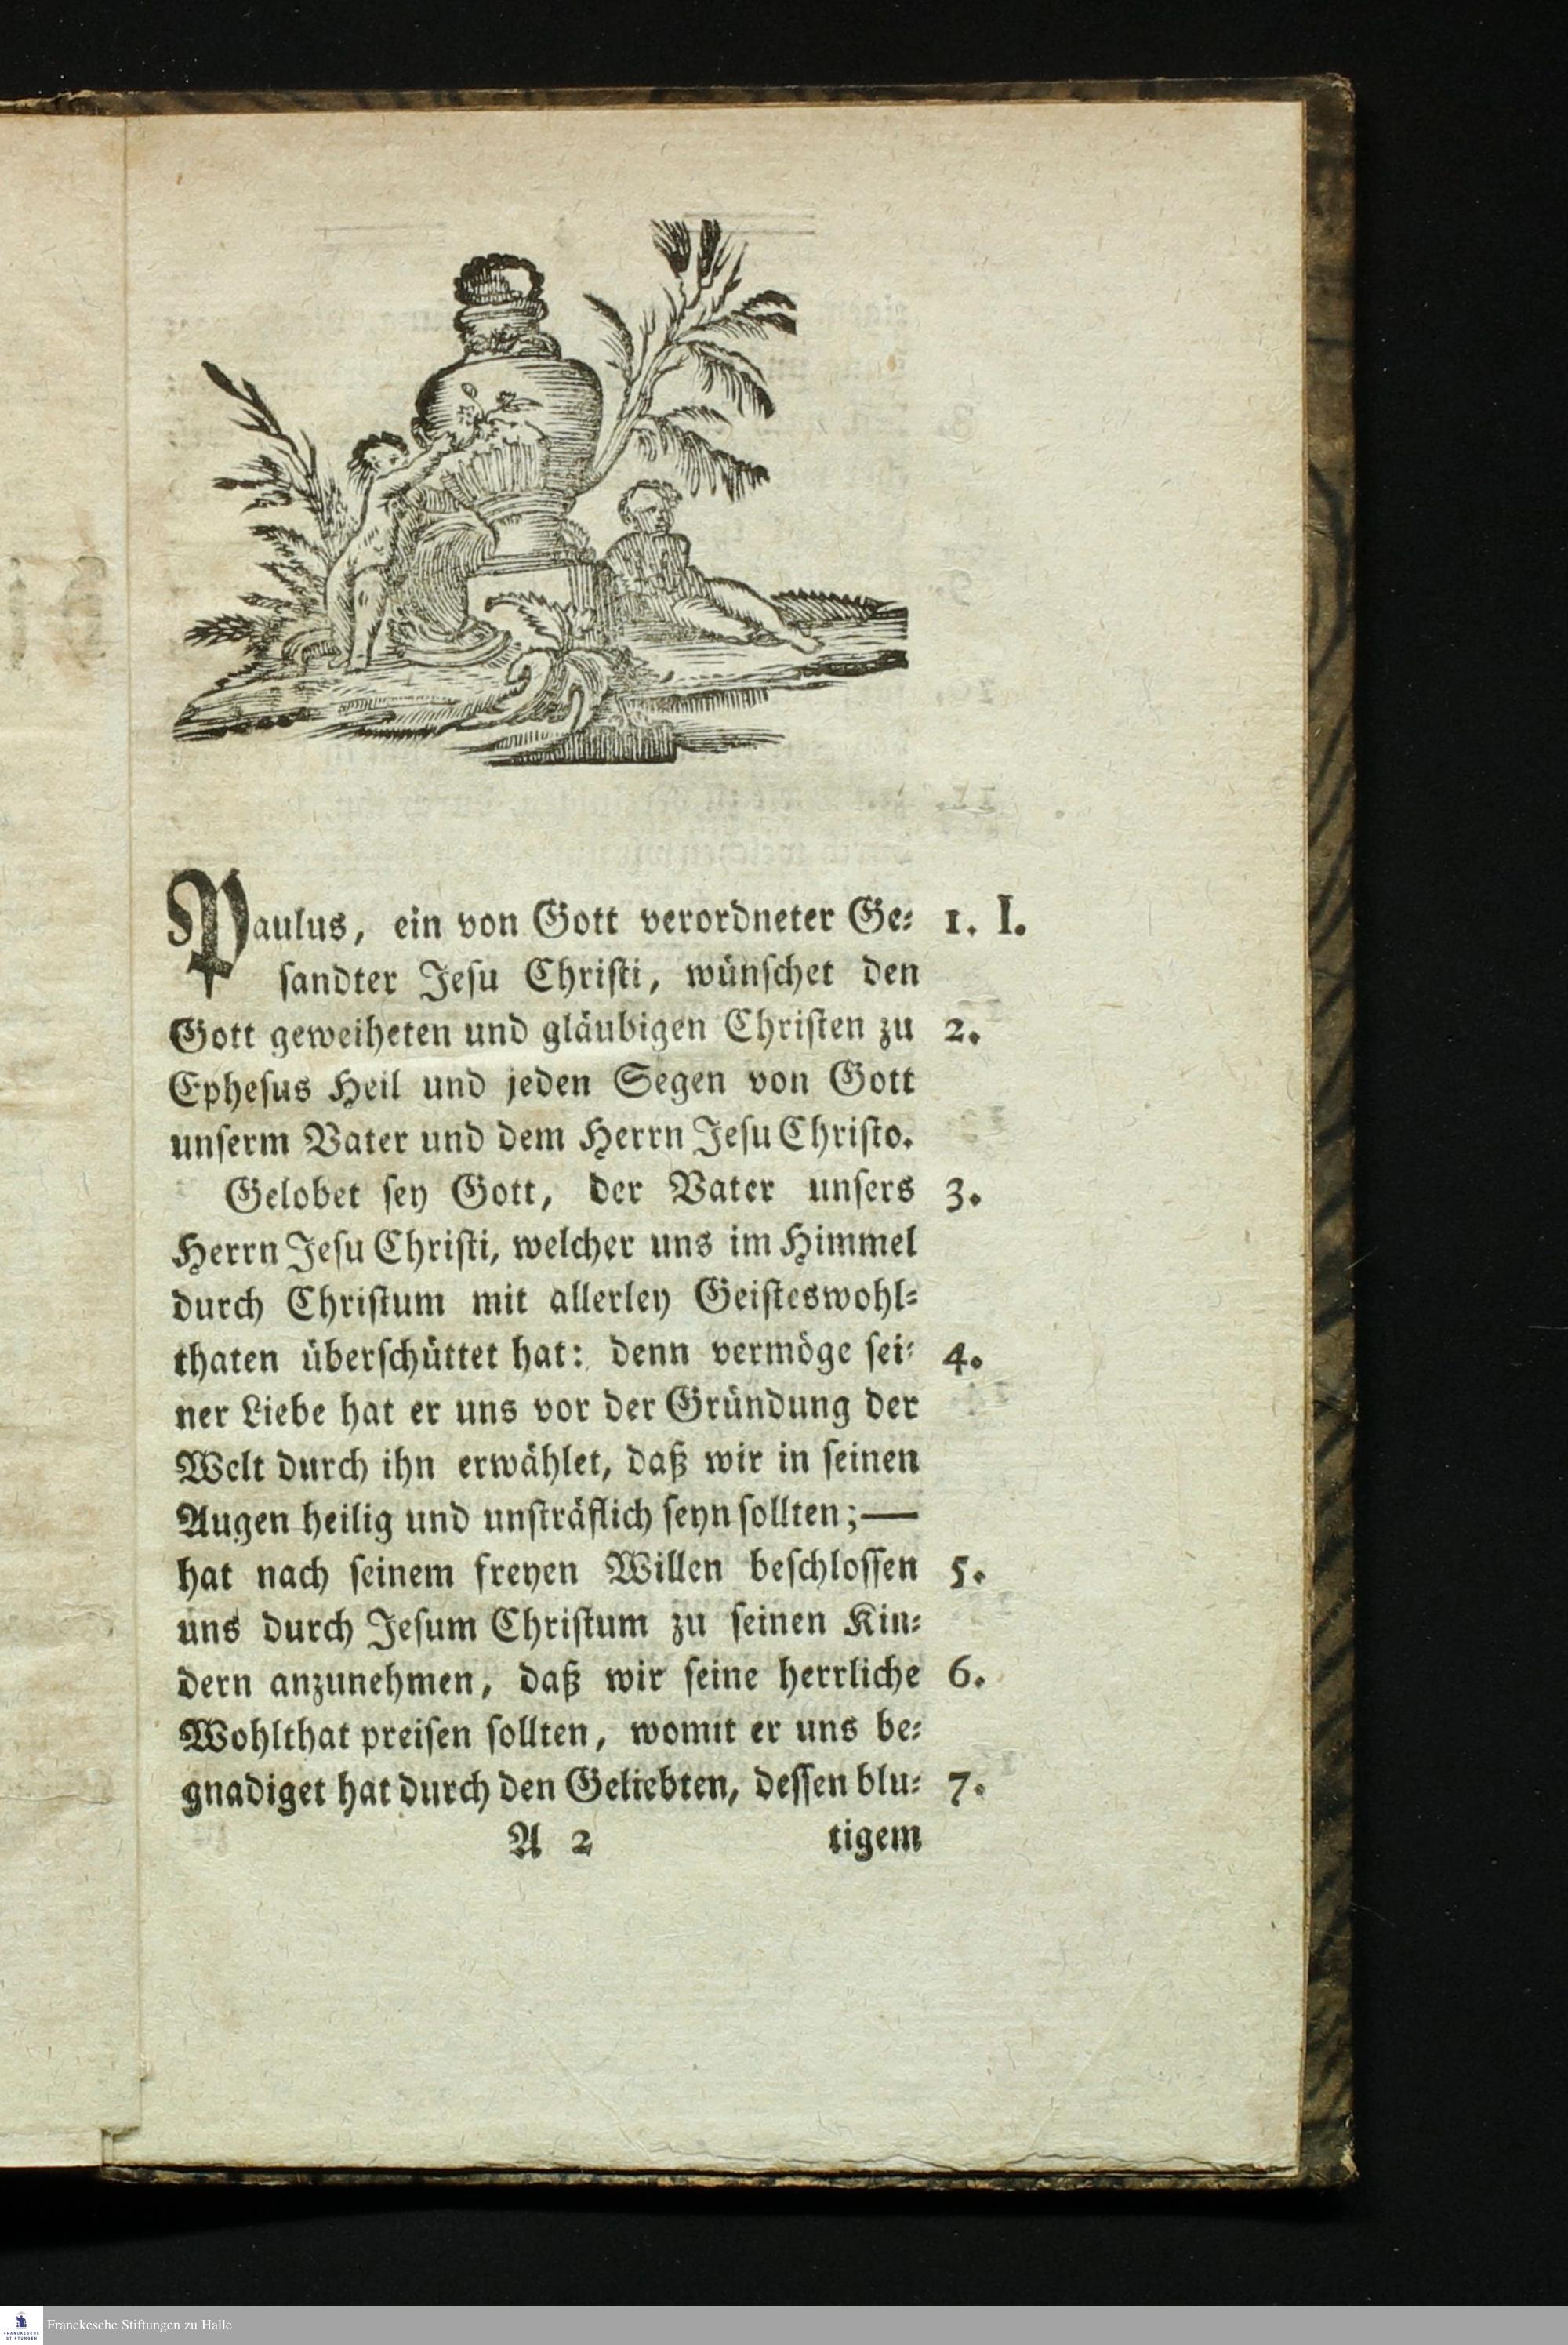 Paulus, ein von Gott verordneter Ge⸗ 1. I.
ſandter Jeſu Chriſti, wünſchet den
Gott geweiheten und gläubigen Chriſten zu 2.
Epheſus Heil und jeden Segen von Gott
unſerm Vater und dem Herrn Jeſu Chriſto.
Gelobet ſey Gott, der Vater unſers 3.
Herrn Jeſu Chriſti, welcher uns im Himmel
durch Chriſtum mit allerley Geiſteswohl⸗
thaten überſchüttet hat: denn vermöge ſei⸗ 4.
ner Liebe hat er uns vor der Gründung der
Welt durch ihn erwählet, daß wir in ſeinen
Augen heilig und unſträflich ſeyn ſollten; —
hat nach ſeinem freyen Willen beſchloſſen 5.
uns durch Jeſum Chriſtum zu ſeinen Kin⸗
dern anzunehmen, daß wir ſeine herrliche 6.
Wohlthat preiſen ſollten, womit er uns be⸗
gnadiget hat durch den Geliebten, deſſen blu⸗ 7.
A 2 tigem
FRANCKESCHE STIFTUNGEN
Franckesche Stiftungen zu Halle